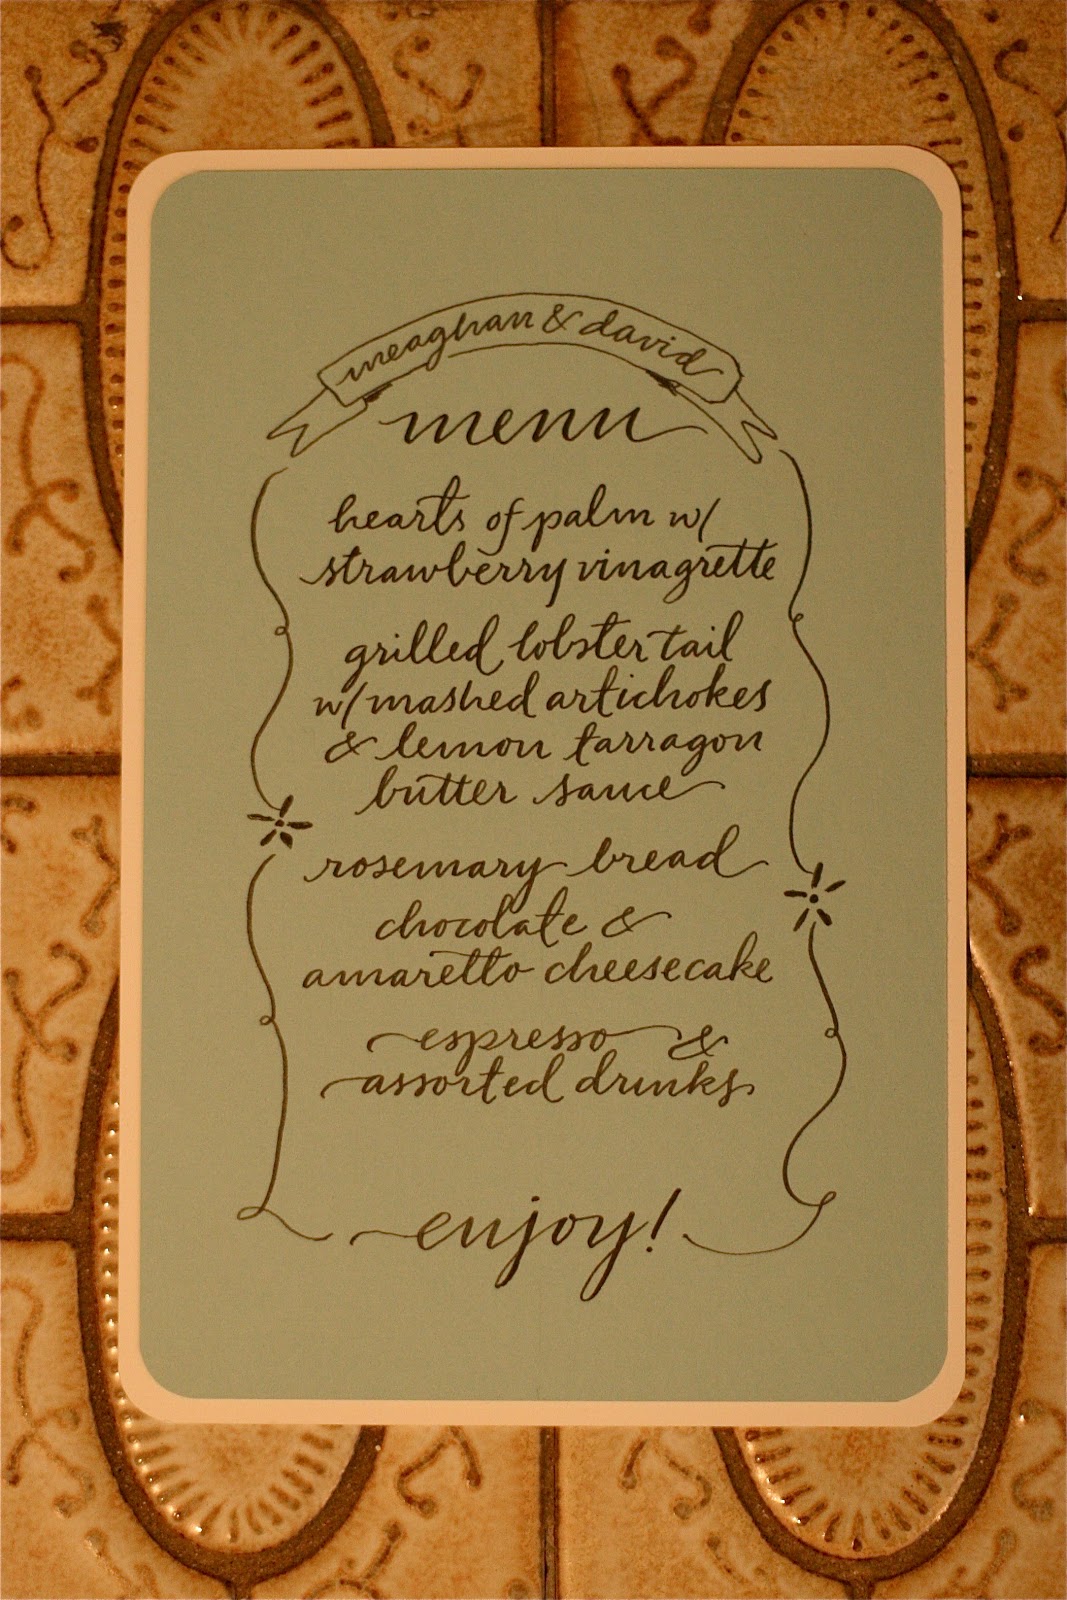 meaghan & david
menu
hearts of palm w/
strawberry vinagrette
grilled lobster tail
w/ mashed artichokes
& lemon tarragon
butter sauce
rosemary bread
chocolate &
amaretto cheesecake
espresso &
assorted drinks
enjoy!